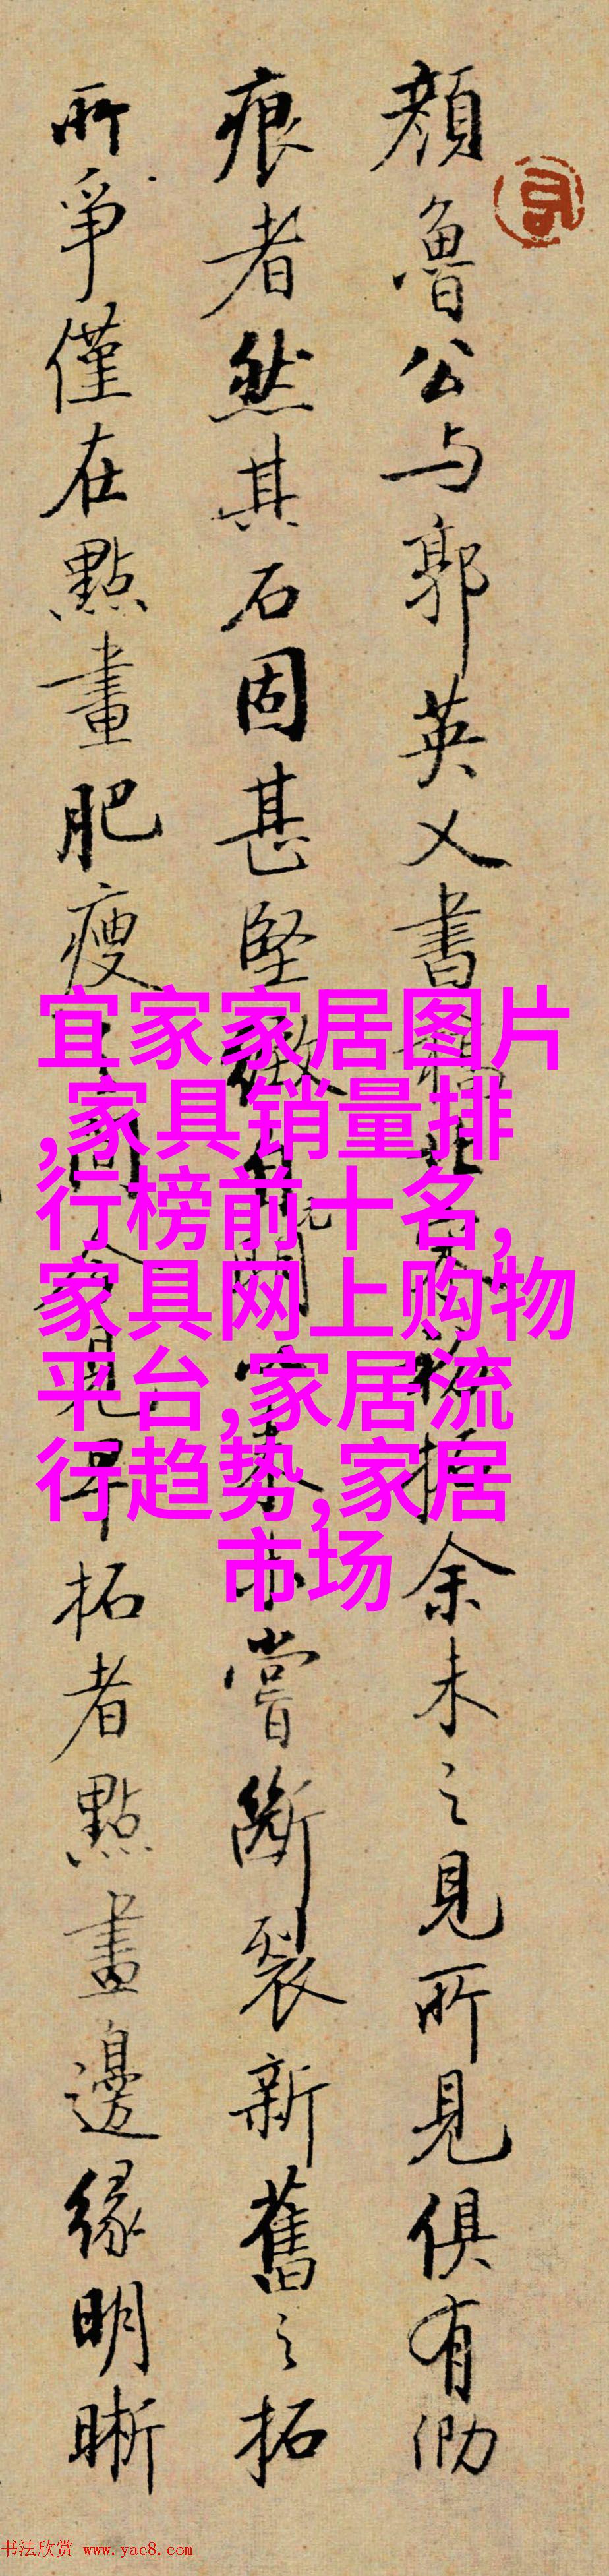 顔魯公与郭英乂書
余未之見所見俱有泐
痕者然其石固甚堅緻
嘗斷裂新舊之拓
所爭僅在點畫肥瘦
見早拓者點畫邊緣明晰
宜家家居图片
,家具销量排
行榜前十名,
家具网上购物
平台,家居流
行趋势,家居
市场
书法欣赏 www.yac8.com